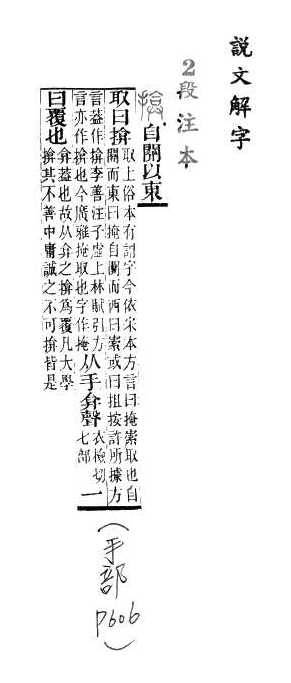 說文解字
2段注本
揜 自關以東
取曰揜
取上俗本有字今依宋本方言曰掩索取也自
關而東曰掩自關而西曰索或曰狙按許所據方
言葢作揜李善注子虛上林賦引方
言亦作揜也今廣雅掩取也字作掩
从手弇聲
衣檢切
七部
一
曰覆也
弇葢也故从弇之揜爲覆凡大學
揜其不善中庸誠之不可揜皆是
(手部 P606)